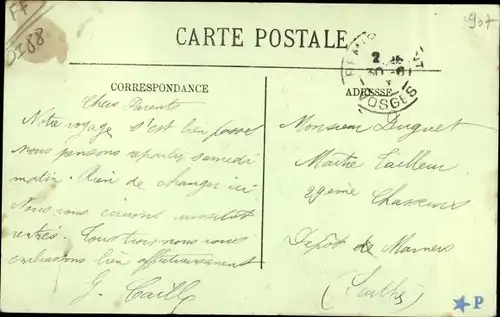 FF
DI88
907
CARTE POSTALE
VOSGES
CORRESPONDANCE
ADRESSE
Chers Parents
Notre voyage s'est bien passé
nous pensons repartir samedi
matin. Rien de changer ici
Nous vous écrirons
rentrés. Tous trois nous vous
embrassons bien affectueusement
G. Caill
Monsieur Duguet
Maître Tailleur
29eme Chasseurs
Dépôt de Mamers
(Sarthe)
P